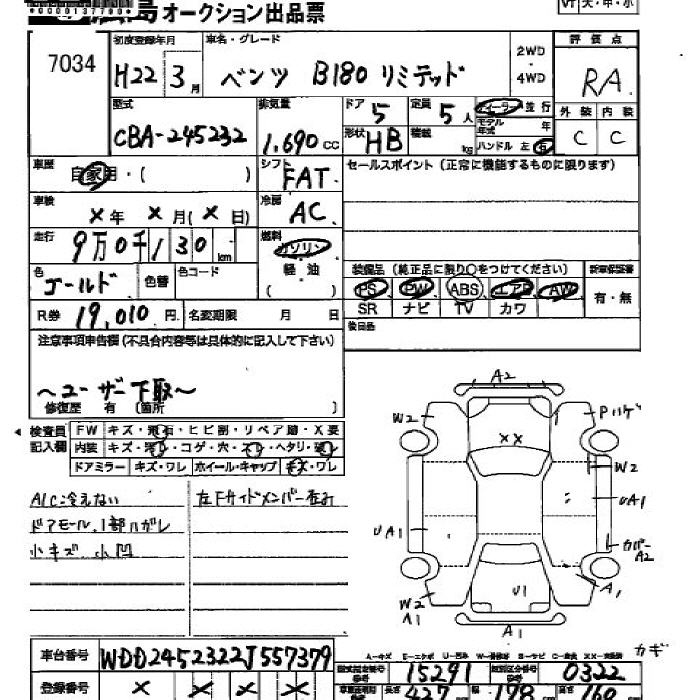 広島オークション出品票
VT 大・中・小
7034
初度登録年月 車名・グレード 2WD・4WD 評価点
H22 3月 ベンツ B180 リミテッド RA
型式 排気量 ドア 定員 ディーラー 並行 外装 内装
CBA-245232 1,690cc 5 5人 モデル年式 年 C C
形状 HB 積載 kg ハンドル 左 右
車歴 自家用・( ) シフト FAT セールスポイント(正常に機能するものに限ります)
車検 ×年 ×月(×日) 冷房 AC
走行 9万0千130km 燃料 ガソリン 軽油 ( )
色 ゴールド 色替 色コード 装備品(純正品に限り○をつけてください) 新車保証書
PS PW ABS エアB AW 有・無
SR ナビ TV カワ
R券 19,010円 名変期限 月 日
後日品
注意事項申告欄(不具合内容等は具体的に記入して下さい)
〜ユーザー下取〜
修復歴 有 (箇所 )
検査員記入欄 FW キズ・飛石・ヒビ割・リペア跡・X要
内装 キズ・汚れ・コゲ・穴・スレ・ヘタリ・破れ
ドアミラー キズ・ワレ ホイール・キャップ キズ・ワレ
A/C冷えない 左Fサイドメンバー歪み
ドアモール、1部ハガレ
小キズ 小凹
A2
W2 Pハゲ
××
W2
UA1
UA1
カバーA2
W2 A1
U1 A1
A1
A-キズ E-エクボ U-凹み カギ
車台番号 WDD2452322J557379
型式指定番号 15291 類別区分番号 0322
登録番号 × × × × 長さ 427cm 幅 178cm 高さ 160